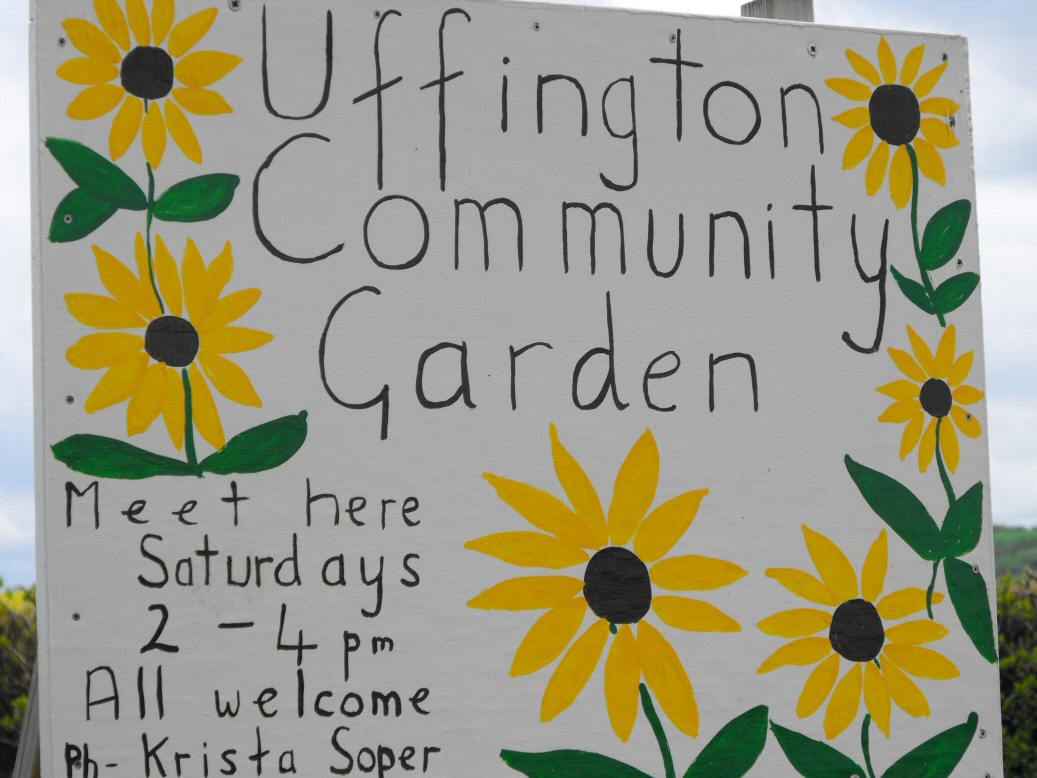 Uffington
Community
Garden
Meet here
Saturdays
2 - 4 pm
All welcome
Ph- Krista Soper